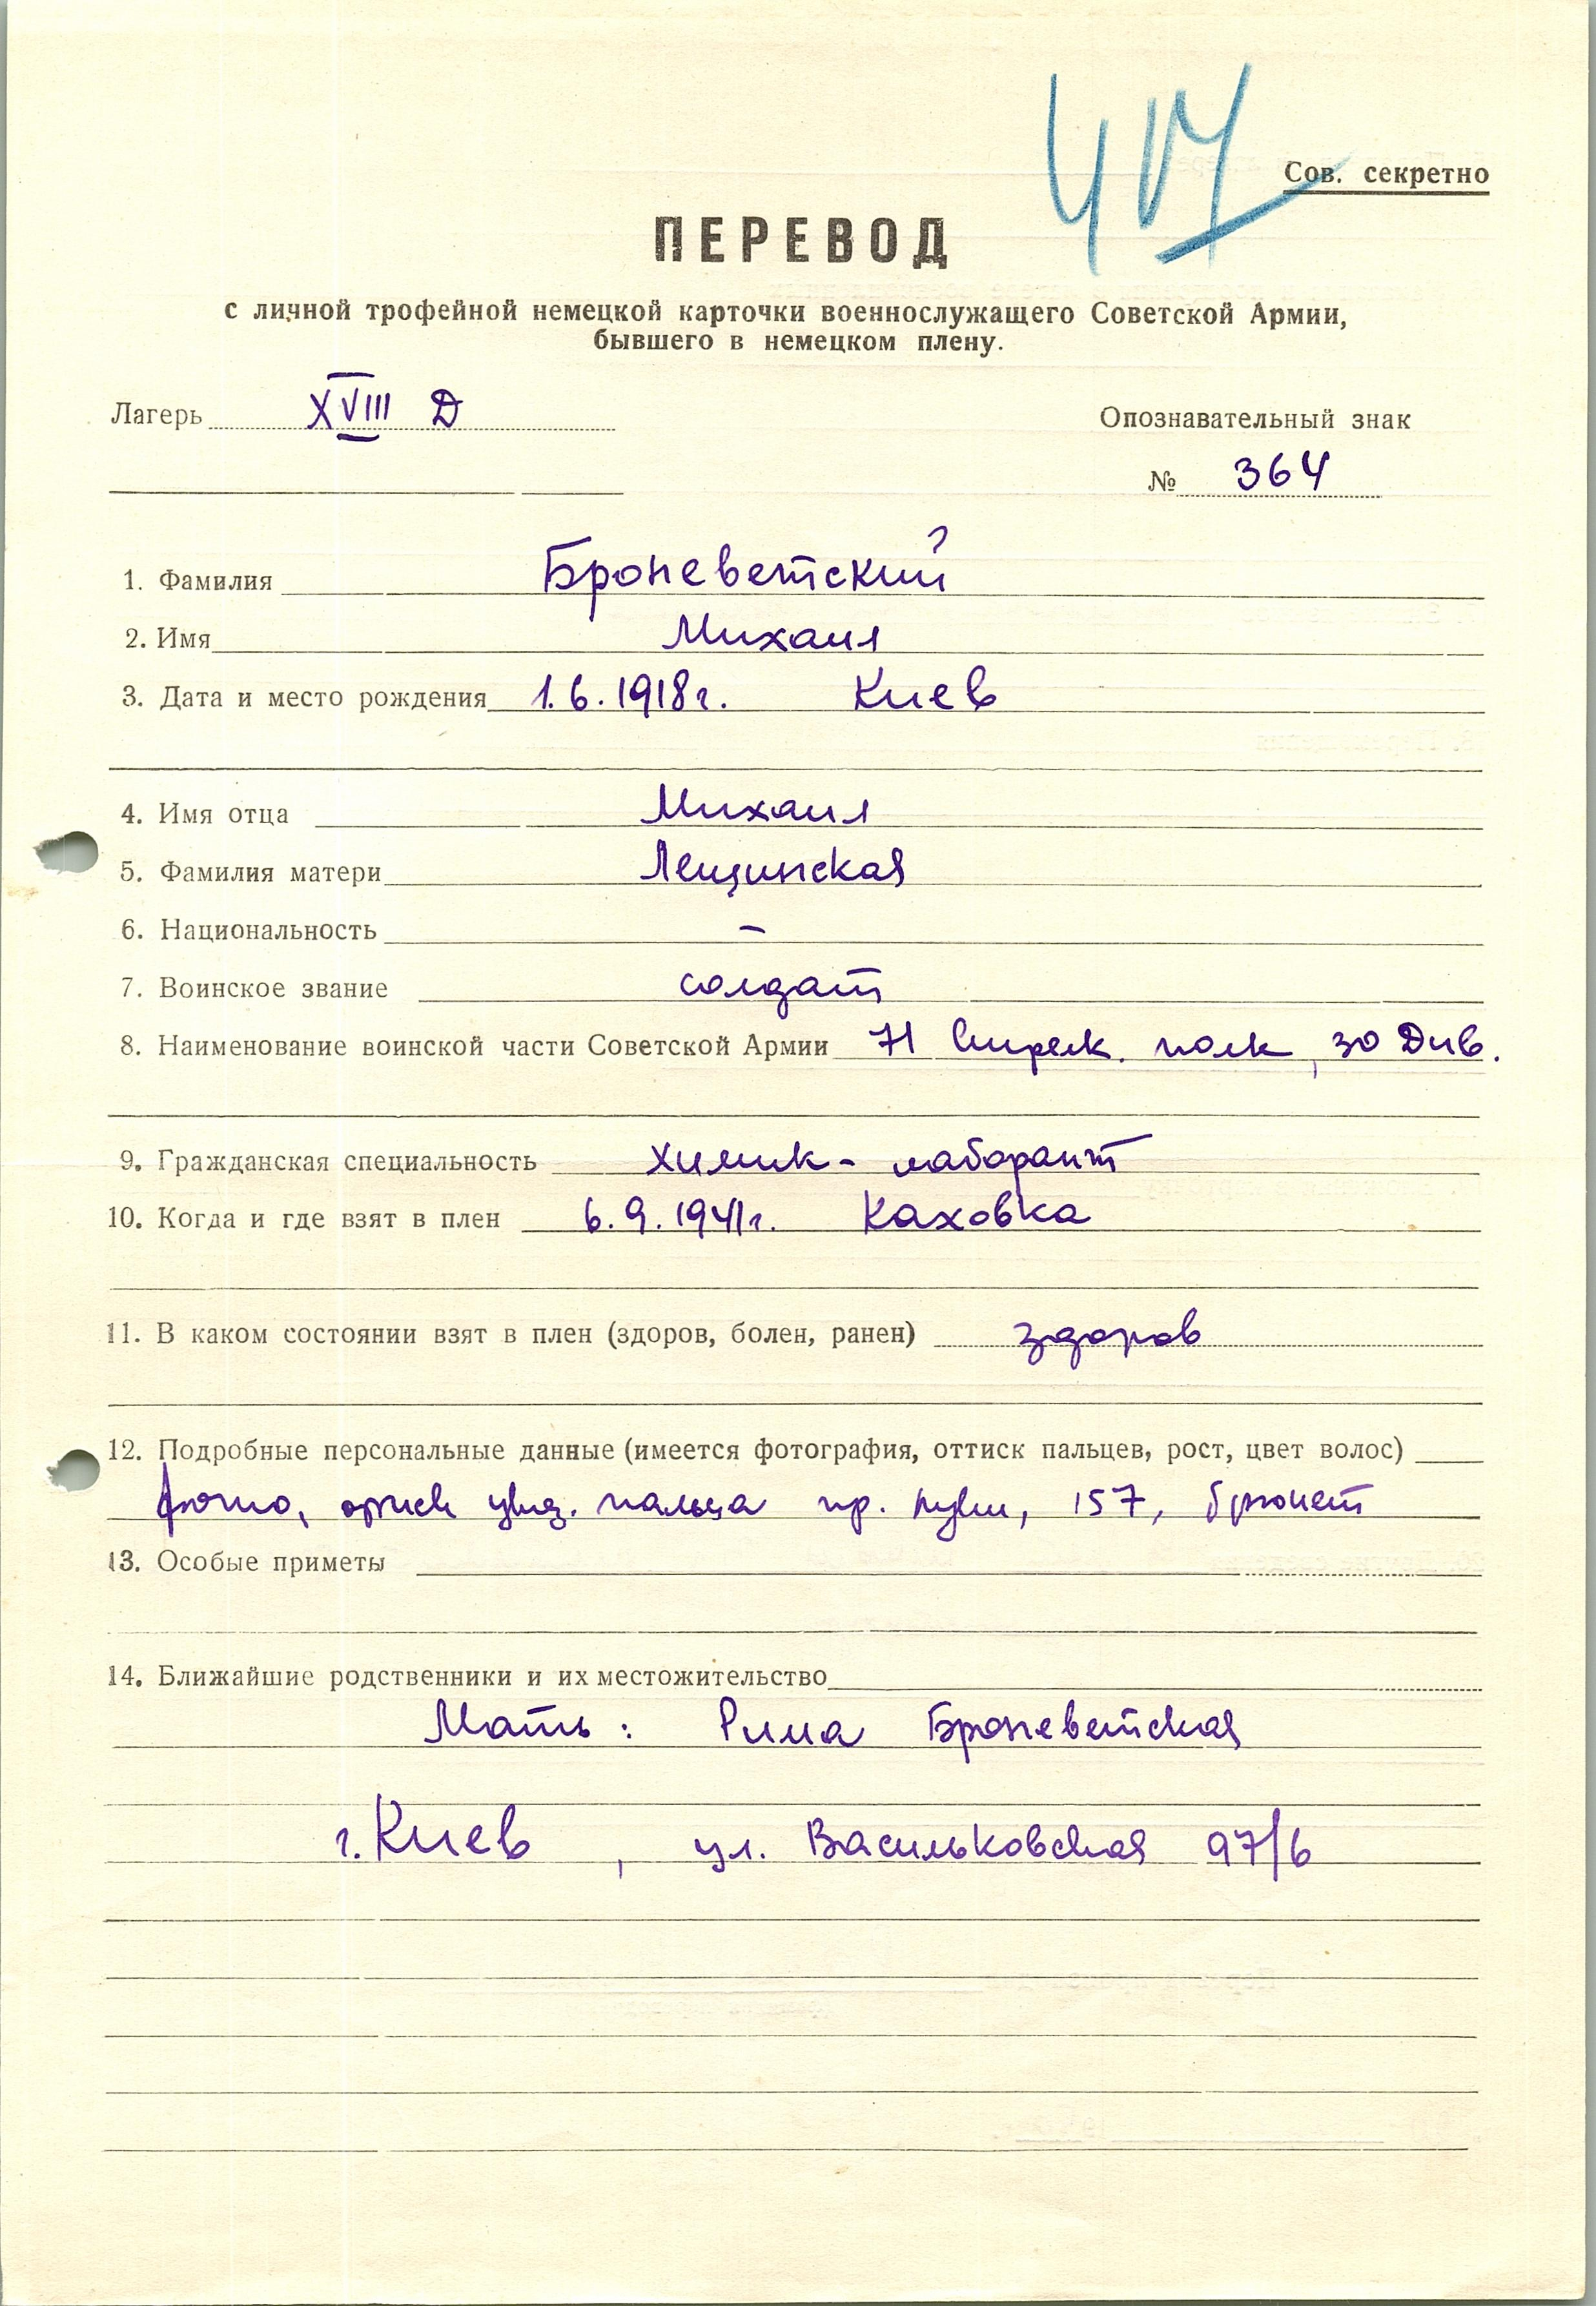 417
Сов. секретно
ПЕРЕВОД
с личной трофейной немецкой карточки военнослужащего Советской Армии,
бывшего в немецком плену.
Лагерь XVIII Д
Опознавательный знак
№ 364
?
1. Фамилия Броневетский
2. Имя Михаил
3. Дата и место рождения 1.6.1918г. Киев
4. Имя отца Михаил
5. Фамилия матери Лещинская
6. Национальность –
7. Воинское звание солдат
8. Наименование воинской части Советской Армии 71 Стрелк. полк, 30 Див.
9. Гражданская специальность химик- лаборант
10. Когда и где взят в плен 6.9.1941г. Каховка
11. В каком состоянии взят в плен (здоров, болен, ранен) здоров
12. Подробные персональные данные (имеется фотография, оттиск пальцев, рост, цвет волос)
фото, пальца пр. руки, 157, брюнет
13. Особые приметы
14. Ближайшие родственники и их местожительство
Мать: Рима Броневетская
г. Киев, ул. Васильковская 97/6